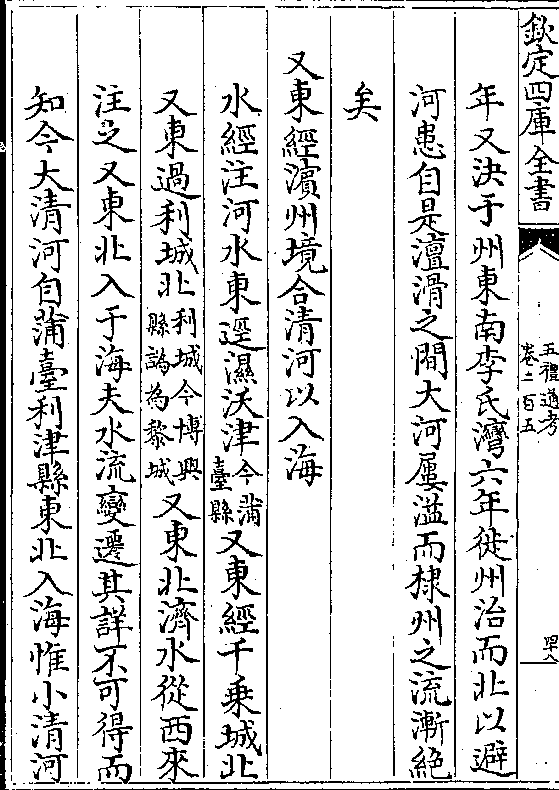 欽定四庫全書
五禮通考
卷二百五
四十八
年又決于州東南李氏灣六年徙州治而北以避
河患自是澶滑之間大河屢溢而棣州之流漸絶
矣
又東經濵州境合清河以入海
水經注河水東逕濕沃津今蒲臺縣又東經千乗城北
又東過利城北利城今博興縣譌為黎城又東北濟水從西來
注之又東北入于海夫水流變遷其詳不可得而
知今大清河自蒲臺利津縣東北入海惟小清河